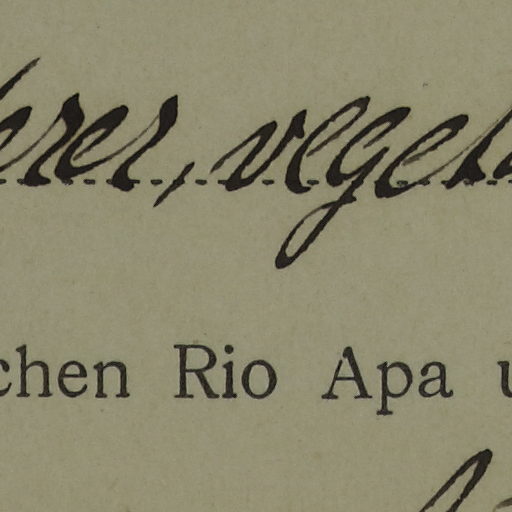 erer, veget
chen Rio Apa u